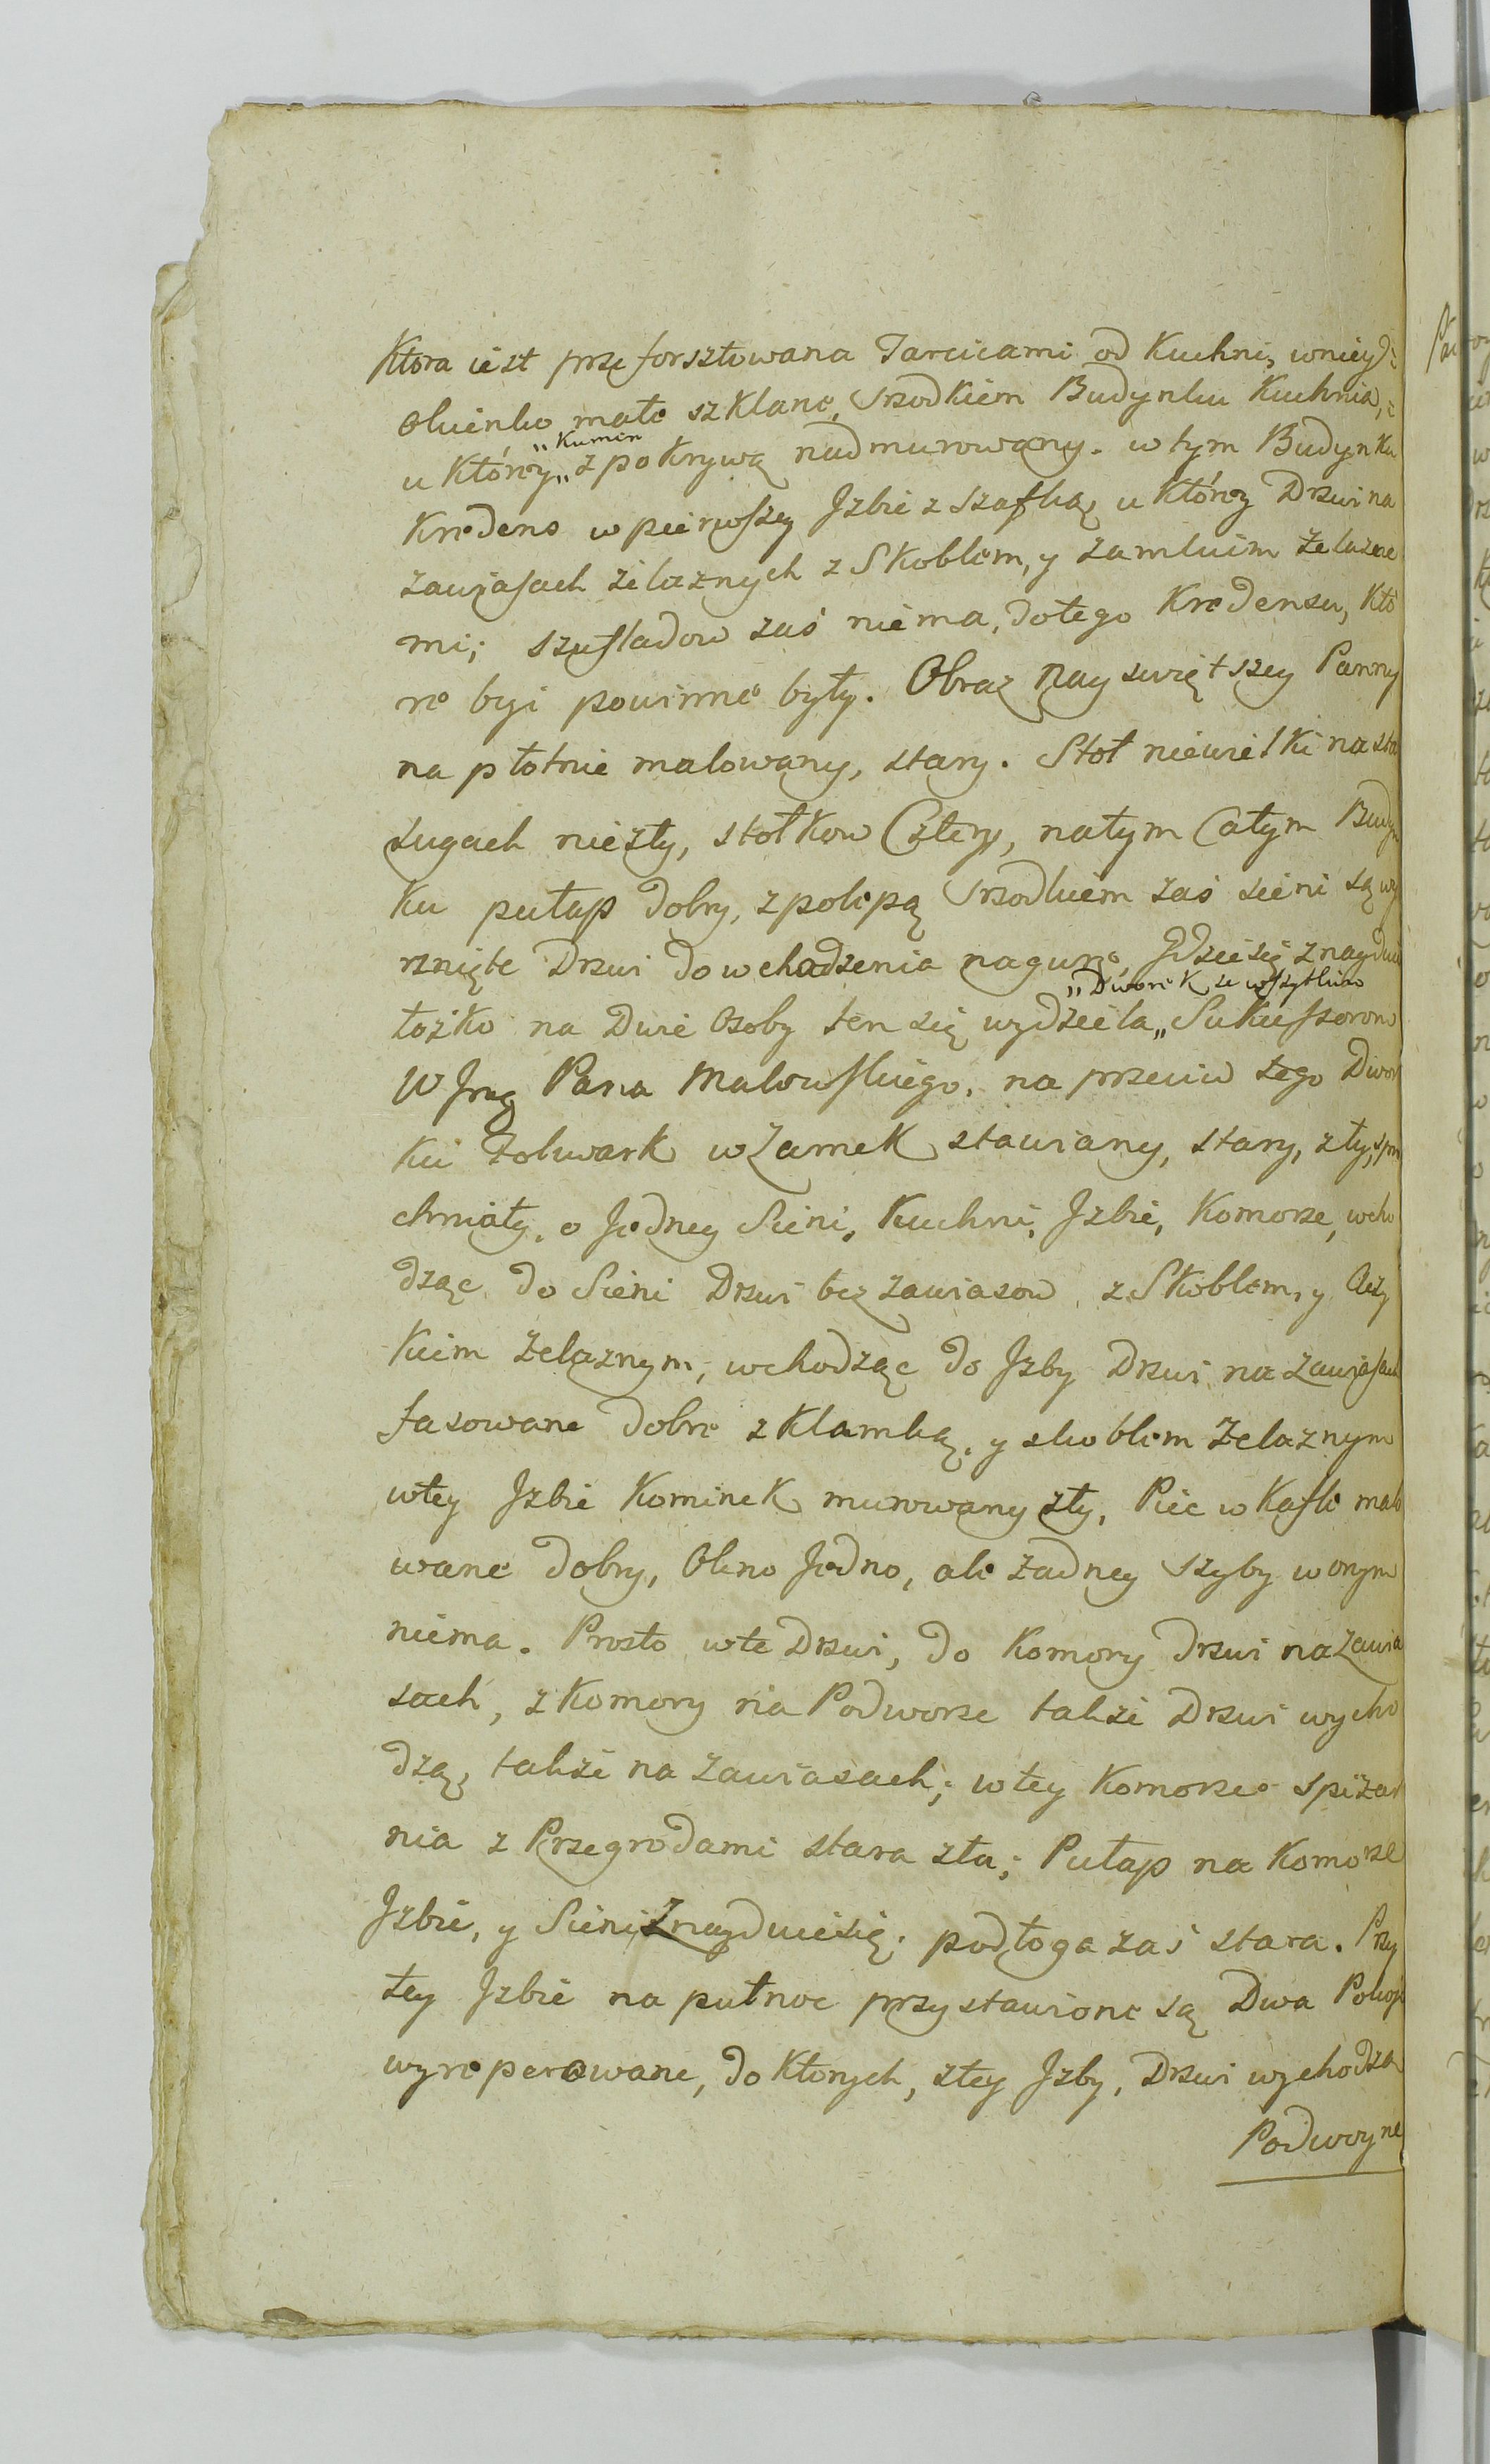 Ktora iest przeforsztowana Tarcicami od Kuchni, wniey
Okienko małe szklane, Srzodkiem Budynku Kuchnia,
„Kumin
u Którey„ z pokrywą nadmurowany. w tym Budynku
Kredens w pierwszey Jzbie z szafką, u Którey Drzwi na
zawiasach żelaznych z Skoblem, y zamkiem żelazne
mi; szufladow zaś niema, dotego Kredensu, Któ
re byi powinne były. Obraz Nayswiętszey Panny
na płotnie malowany, stary. Stoł niewielki na sta
lugach niezły, stołkow Cztery, natym Całym Budyn
ku pułap dobry, z polepą Srzodkiem zaś sieni są wy
rznięte Drzwi do wchodzenia nagurę, Gdzie się znayduie
„Dworek ze wszytkim
łożko na Dwie Osoby ten się wydziela„ Sukussorow
W Jmę Pana Malowskiego, na przeciw tego Dwor
ku Folwark w Zamek stawiany, stary, zły, spru
chniały, o Jedney Sieni, Kuchni, Jzbie, Komorze, wcho
dząc do Sieni Drzwi bez zawiasow z Skoblem, y
kiem żelaznym, wchodząc do Jzby Drzwi na zawiasach
fasowane dobre z Klamką, y skoblem żelaznym
wtey Jzbie Kominek murowany zły, Piec w Kafle malo
wane dobry, Okno Jedno, ale żadney szyby w onym
niema. Prosto wte Drzwi, do Komory Drzwi na zawia
sach, z Komory na Podworze także Drzwi wycho
dzą, także na zawiasach; wtey Komorze spiżar
nia z Przegrodami stara zła; Pułap na Komorze
Jzbie, y Sieni Znayduie się, podłoga zaś stara. Przy
tey Jzbie na pułnoc przystawione są Dwa Pokoje
wyreperowane, do Ktorych, ztey Jzby, Drzwi wychodzą
Podwoyne